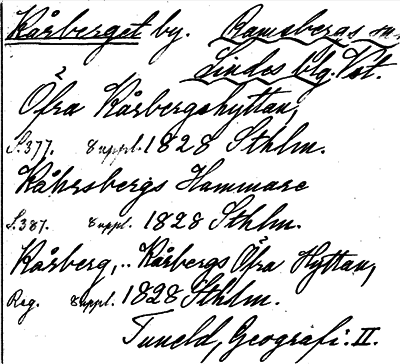 Kårberget by. Ramsbergs sn,
Lindes blg. Vst.
Öfra Kårbergshyttan,
S.377. Suppl. 1828 Sthlm.
Kåhrsbergs Hammare
S.387. Suppl. 1828 Sthlm.
Kårberg, .. Kårbergs Öfra Hyttan,
Reg. Suppl. 1828 Sthlm.
Tuneld, Geografi. II.